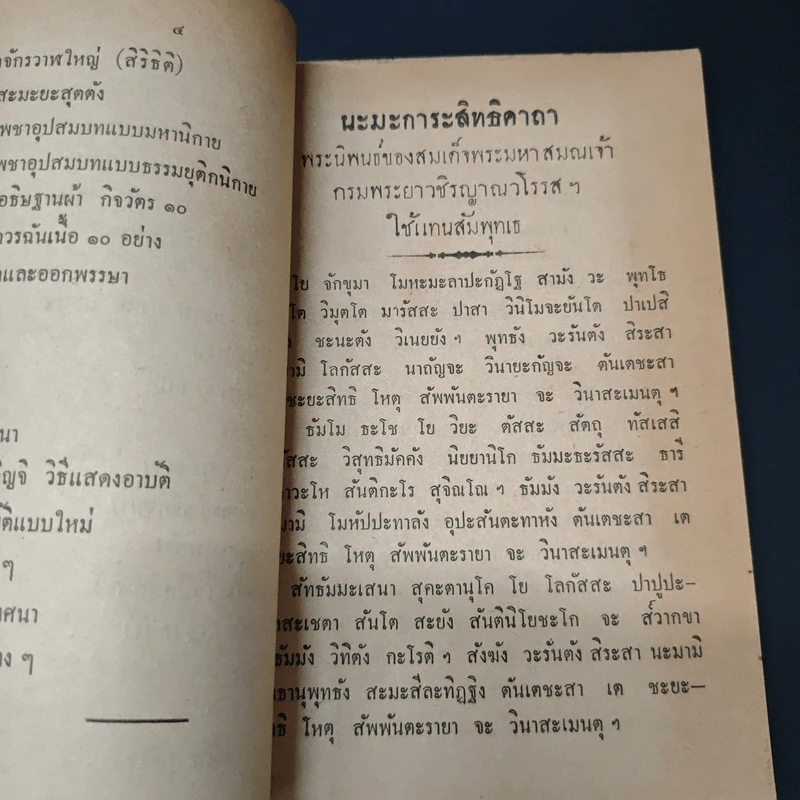 ๔
จักรวาฬใหญ่ (สิริธิติ)
สะมะยะสุตตัง
พชาอุปสมบทแบบมหานิกาย
พชาอุปสมบทแบบธรรมยุติกนิกาย
อธิษฐานผ้า กิจวัตร ๑๐
ควรฉันเนื้อ ๑๐ อย่าง
และออกพรรษา
นา
ญจิ วิธีแสดงอาบัติ
ติแบบใหม่
ๆ
ศนา
ง ๆ
นะมะการะสิทธิคาถา
พระนิพนธ์ของสมเด็จพระมหาสมณเจ้า
กรมพระยาวชิรญาณวโรรส ฯ
ใช้แทนสัมพุทเธ
โย จักขุมา โมหะมะลาปะกัฏโฐ สามัง วะ พุทโธ
โต วิมุตโต มารัสสะ ปาสา วินิโมจะยันโต ปาเปสิ
ชะนะตัง วิเนยยัง ฯ พุทธัง วะรันตัง สิระสา
มามิ โลกัสสะ นาถัญจะ วินายะกัญจะ ตันเตชะสา
ชะยะสิทธิ โหตุ สัพพันตะรายา จะ วินาสะเมนตุ ฯ
ธัมโม ธะโช โย วิยะ ตัสสะ สัตถุ ทัสเสสิ
กัสสะ วิสุทธิมัคคัง นิยยานิโก ธัมมะธะรัสสะ ธารี
าวะโห สันติกะโร สุจิณโณ ฯ ธัมมัง วะรันตัง สิระสา
มามิ โมหัปปะทาลัง อุปะสันตะทาหัง ตันเตชะสา เต
ยะสิทธิ โหตุ สัพพันตะรายา จะ วินาสะเมนตุ ฯ
สัทธัมมะเสนา สุคะตานุโค โย โลกัสสะ ปาปูปะ–
สะเชตา สันโต สะยัง สันตินิโยชะโก จะ ส๎วากขา
ธัมมัง วิทิตัง กะโรติ ฯ สังฆัง วะรันตัง สิระสา นะมามิ
ธานุพุทธัง สะมะสีละทิฏฐิง ตันเตชะสา เต ชะยะ–
ทธิ โหตุ สัพพันตะรายา จะ วินาสะเมนตุ ฯ